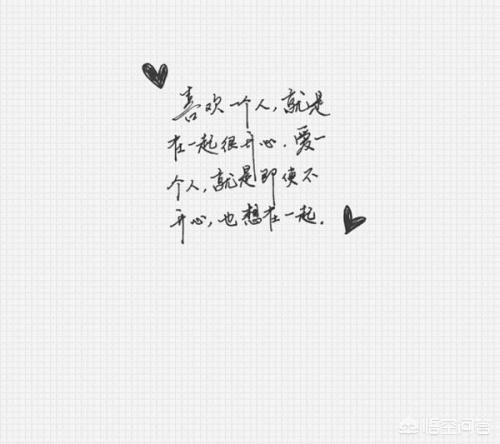 喜欢一个人，就是
在一起很开心．爱一
个人，就是即使不
开心，也想在一起．
悟空问答